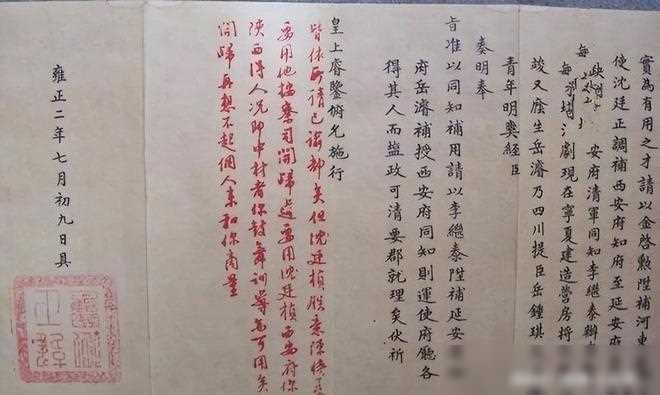 實為有用之才請以金啓勲陞補河東
使沈廷正調補西安府知府至延安府
安府清軍同知李繼泰辦
劇現在寧夏建造營房將
竣又廕生岳濬乃四川提臣岳鍾琪
青年明爽經臣
奏明奉
旨准以同知補用請以李繼泰陞補延安
府岳濬補授西安府同知則運使府廳各
得其人而鹽政可清要郡就理矣伏祈
皇上睿鑒俯允施行
皆依所請已諭部矣但沈廷楨
要用他按察司開歸道要用沈廷楨西安府你
陝西得人况即中材者你鼓舞訓導亦可用矣
開歸再想不起個人來和你商量
雍正二年七月初九日具